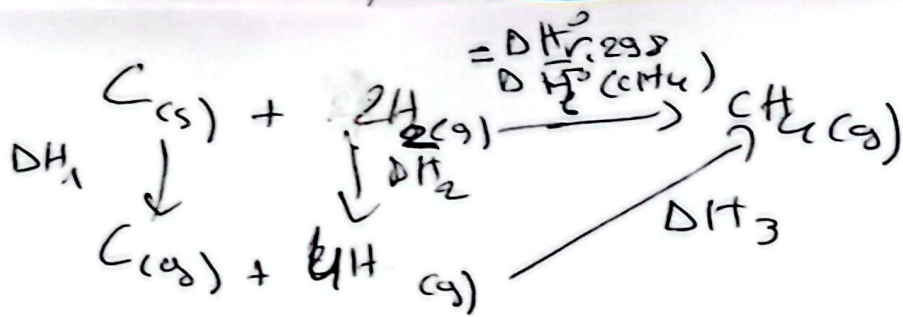 = DH°r,298
DH°f (CH4)
C(s) + 2H2(g) → CH4(g)
DH1 ↓ ↓ DH2
DH3
C(g) + 4H (g)